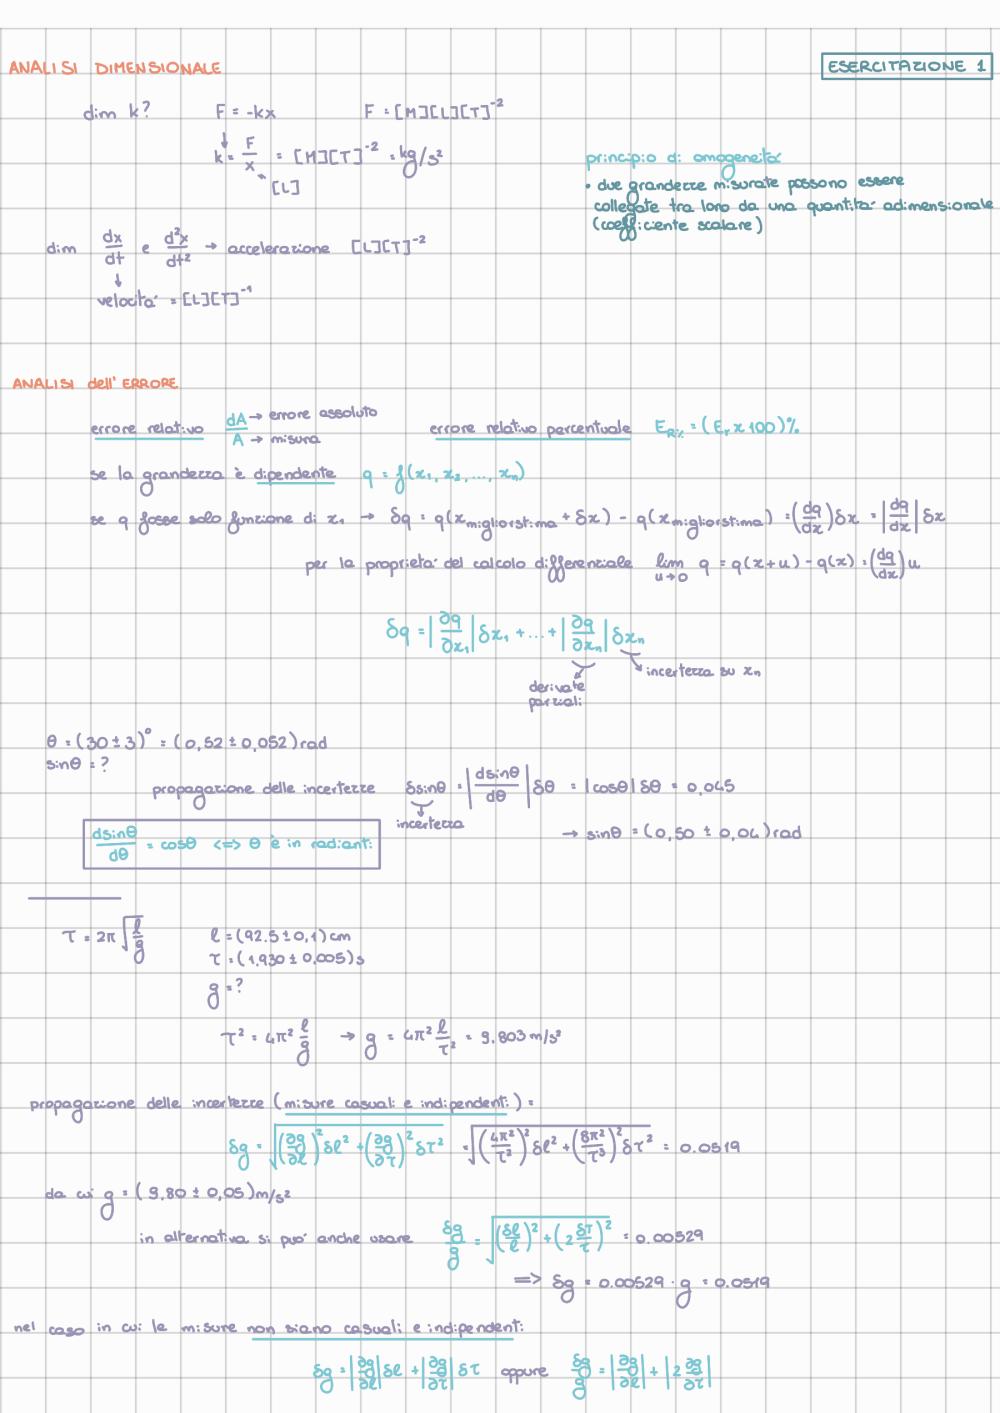 ANALISI DIMENSIONALE
ESERCITAZIONE 1
dim k? F = -kx F = [M][L][T]⁻²
k = F/x = [M][T]⁻² = kg/s²
[L]
principio di omogeneità
• due grandezze misurate possono essere
collegate tra loro da una quantità adimensionale
(coefficiente scalare)
dim dx/dt e d²x/dt² → accelerazione [L][T]⁻²
↓
velocità = [L][T]⁻¹
ANALISI dell'ERRORE
errore relativo dA/A → errore assoluto → misura errore relativo percentuale E_R% = (E_r x 100)%
se la grandezza è dipendente q = f(x₁, x₂, ..., xₙ)
se q fosse solo funzione di x₁ → δq = q(x_migliorstima + δx) - q(x_migliorstima) = (dq/dx)δx = |dq/dx| δx
per la proprietà del calcolo differenziale lim u→0 q = q(x+u) - q(x) = (dq/dx) u
δq = |∂q/∂x₁| δx₁ + ... + |∂q/∂xₙ| δxₙ
incertezza su xₙ
derivate
parziali
θ = (30 ± 3)° = (0,52 ± 0,052) rad
sinθ = ?
propagazione delle incertezze δsinθ = |dsinθ/dθ| δθ = |cosθ| δθ = 0,045
incertezza
→ sinθ = (0,50 ± 0,04) rad
dsinθ/dθ = cosθ <=> θ è in radianti
τ = 2π √(l/g) l = (92.5 ± 0,1) cm
τ = (1,930 ± 0,005) s
g = ?
τ² = 4π² l/g → g = 4π² l/τ² = 9.803 m/s²
propagazione delle incertezze (misure casuali e indipendenti) =
δg = √((∂g/∂l)² δl² + (∂g/∂τ)² δτ²) = √((4π²/τ²)² δl² + (8π²/τ³)² δτ²) = 0.0519
da cui g = (9.80 ± 0,05) m/s²
in alternativa si può anche usare δg/g = √((δl/l)² + (2 δτ/τ)²) = 0.00529
=> δg = 0.00529 · g = 0.0519
nel caso in cui le misure non siano casuali e indipendenti:
δg = |∂g/∂l| δl + |∂g/∂τ| δτ oppure δg/g = |∂g/∂l| + |2 ∂g/∂τ|